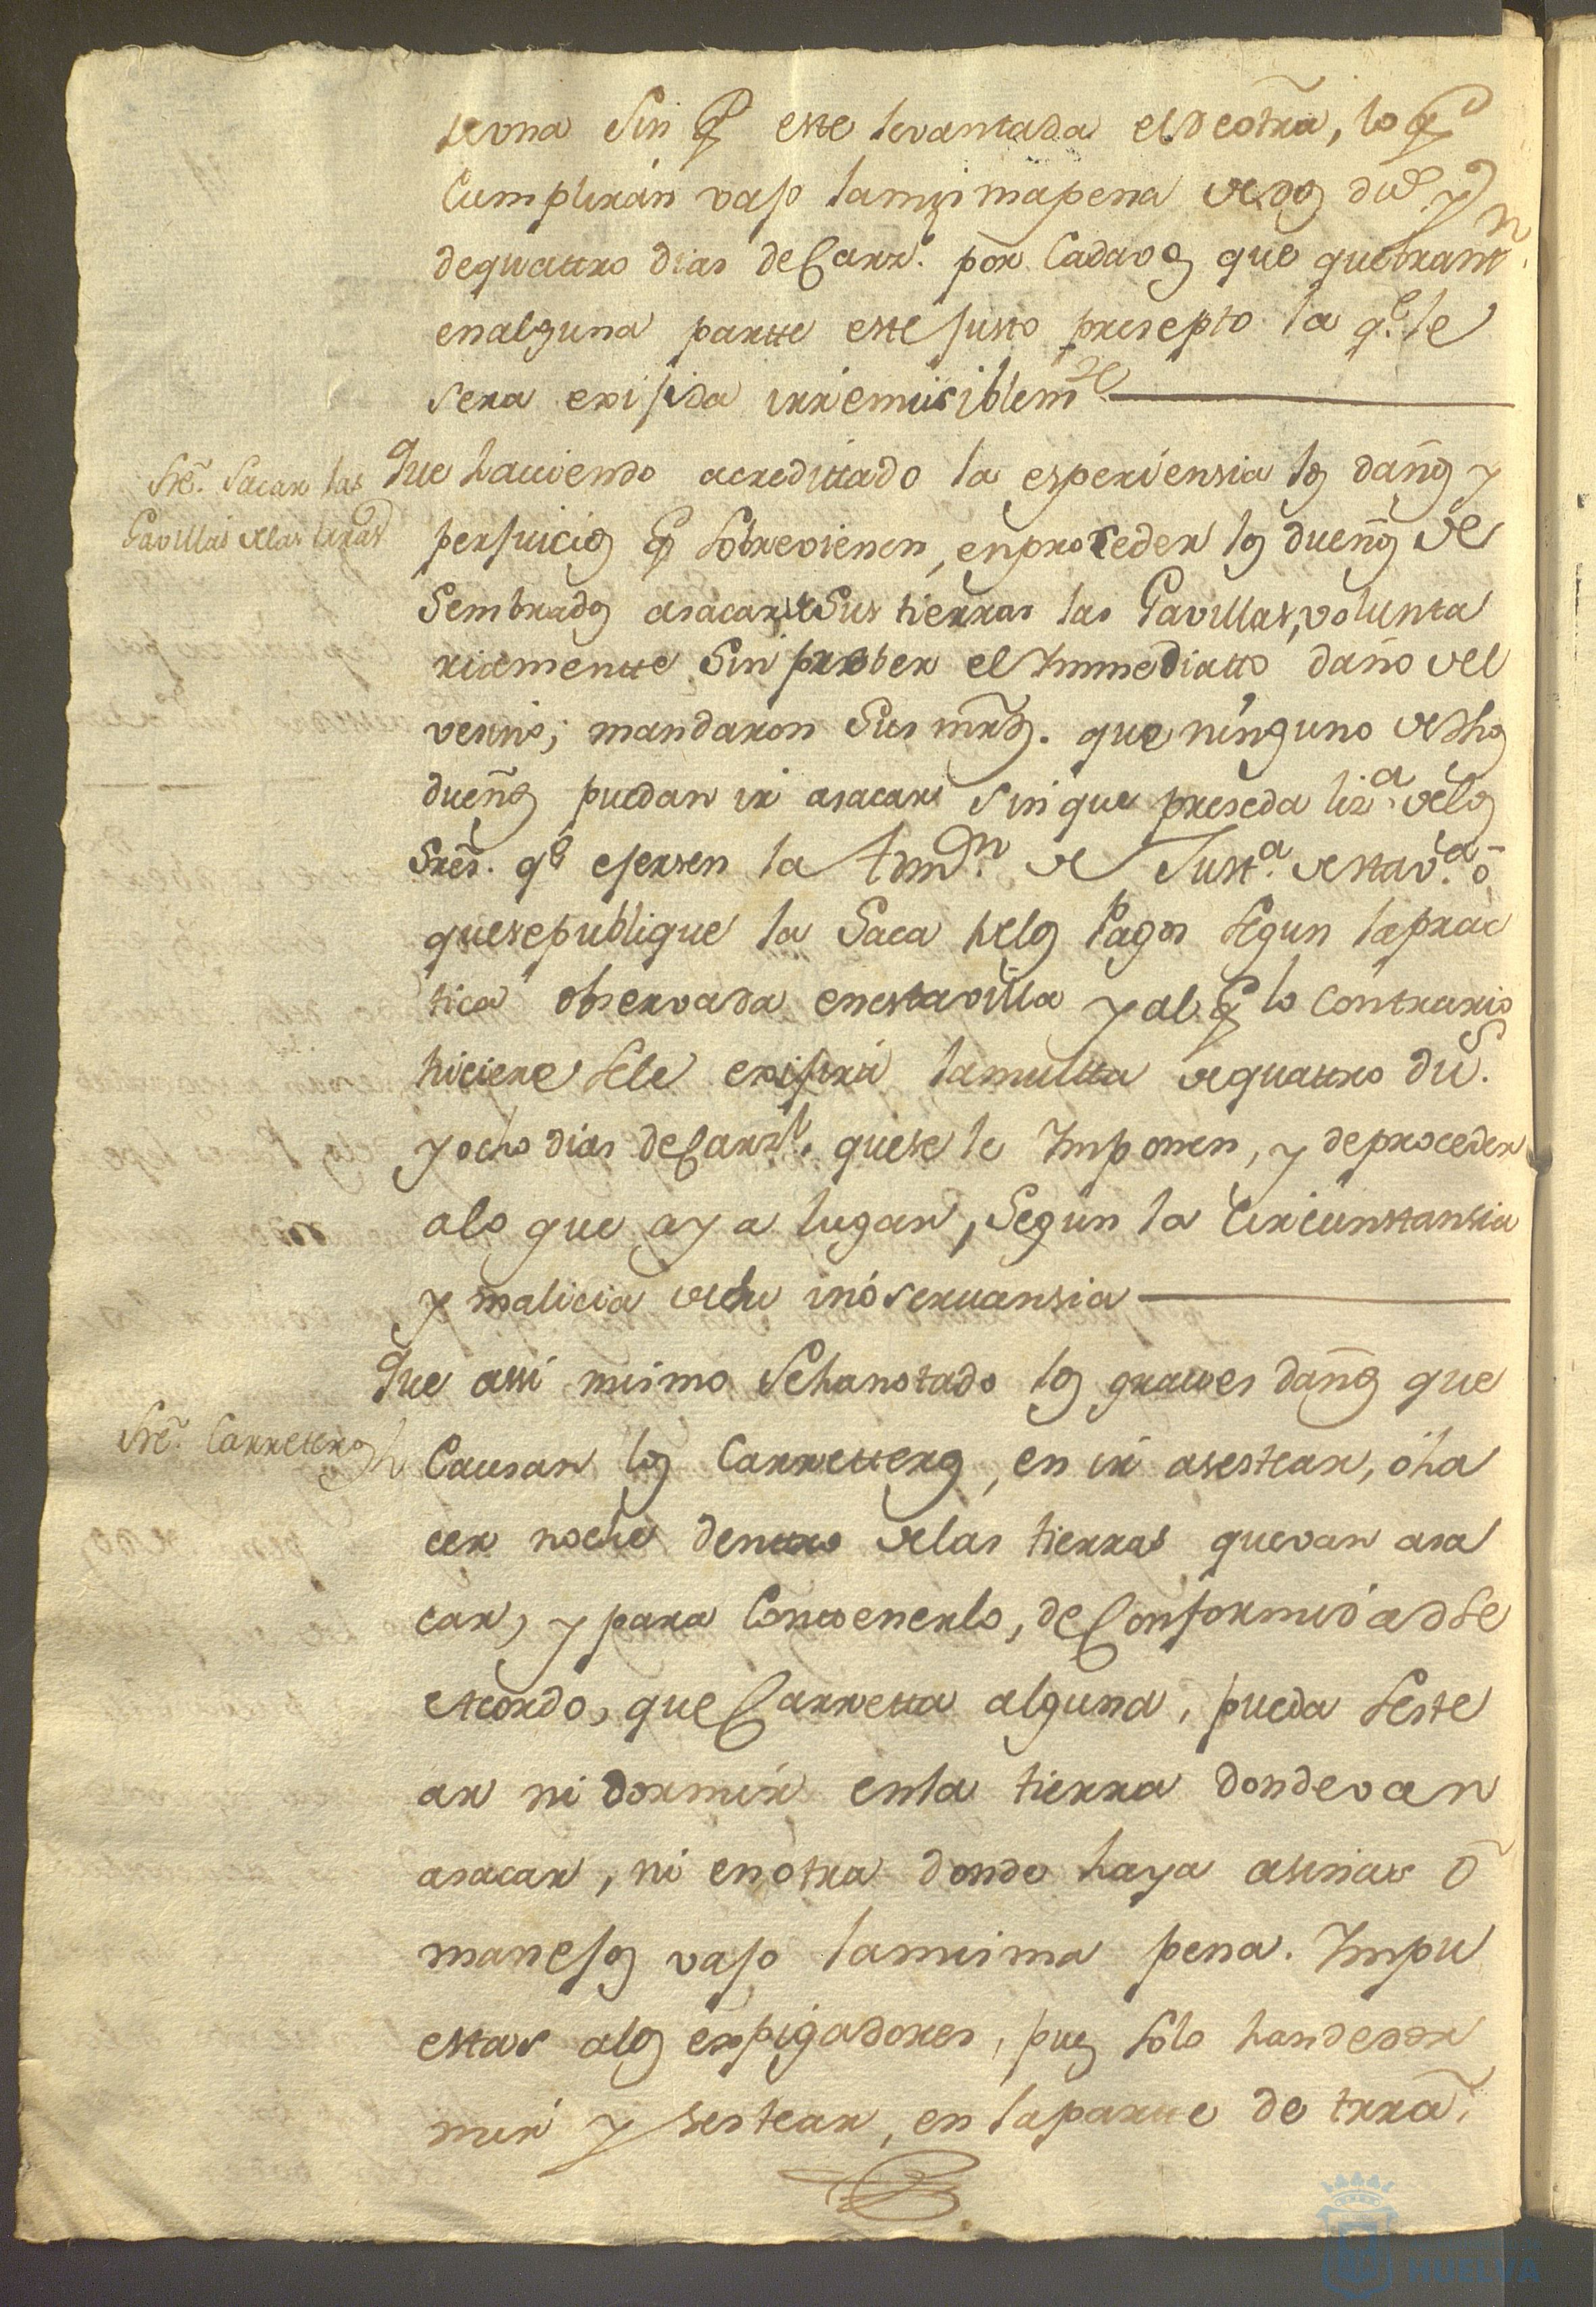 de una sin q̃ este levantada el de otra, lo q̃
Cumpliran vajo la misma pena de dos du.s y
de quattro dias de Carz.l por Cada vos que quebrant.n
en alguna partte este justo presepto la q.e le
sera exijida irremisiblem.te
Sre. Sacar las
Gavillas de las tierras
Que haviendo acredittado la esperiensia los daños y
perjuicios q̃ sobrevienen, en proseder los dueños de
Sembrados a sacar de sus tierras las Gavillas, volunta
riamentte sin prober el Immediatto daño del
vesino; mandaron sus mrds. que ninguno de dhos
dueños puedan ir a sacar sin que preseda liz.a de los
Sres. q.e ejersen la Admn. de Justt.a de esta v.a o
que se publique la Saca de los Pagos segun la prac
tica observada en esta villa y al q̃ lo Contrario
hiciere se le exijira la multta de quattro du.s
y ocho dias de Carz.l que se le Imponen, y de proceder
a lo que aya lugar, Segun la Circunstansia
y malicia de su inoservansia
Sre. Carreteros
Que assi mismo se ha notado los graves daños que
Causan los Carretteros, en ir a sestear, o ha
cer noche dentro de las tierras que van a sa
car, y para Contenerlo, de Conformidad se
acordo, que Carretta alguna, pueda seste
ar ni dormir en la tierra donde van
a sacar, ni en otra donde haya asinas o
manojos vajo la misma pena. Impu
estas a los expigadores, pues solo han de dor
mir y sestear, en la partte de trra.
HUELVA